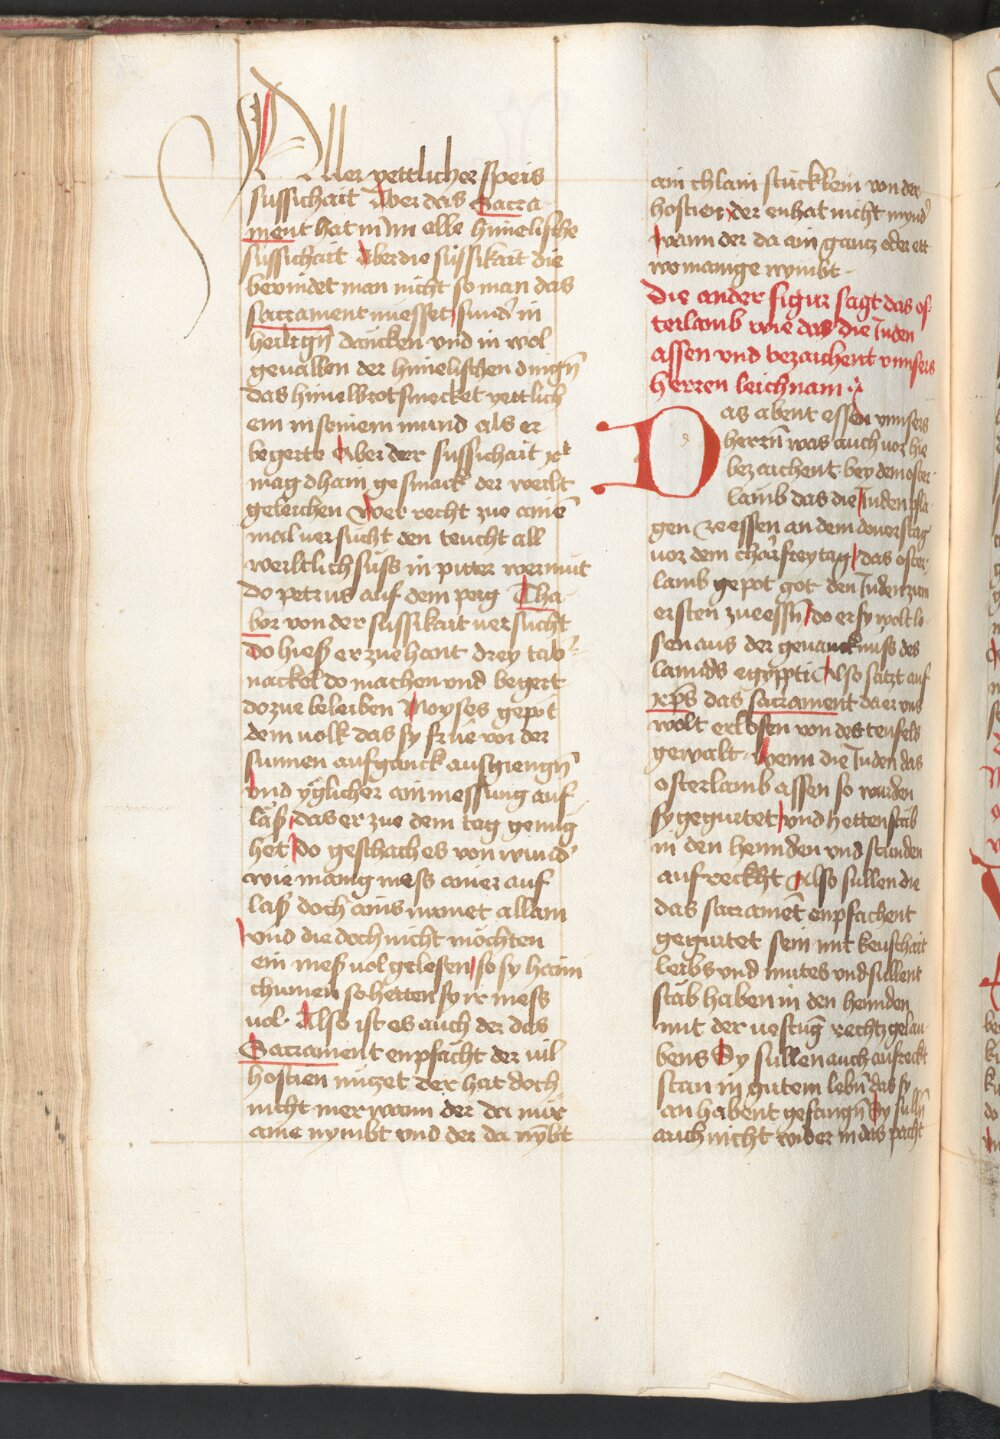 Aller yettlicher speis
sussichait Aber das Sacra-
ment hat in im elle himelische
sussichait Aber die sussikait die
bevindet man nicht so man das
sacrament niesset sunder in
heiligen dancken und in wol
gevallen der himelischen dingen
das himelbrot smecket yettlich
em in seinem mund als er
begerte Aber der sussichait xpi
mag dhain gesmack der werlt
geleichen Wer recht zue aine
mal versucht den teucht all
werltlich suss in pitter wermut
Do petrus auf dem perg Tha-
bor von der sussikait versucht
do hiess er zuehant drey tab
nackel do machen und begert
dozue beleiben Moyses gepot
dem volk das sy frue vor der
sunnen aufganck ausgiengen
und yglicher ain messung auf
lass das er zue dem tag genug
het do geschach es von wund
wie manig mess ainer auf
lass doch ains namet allain
und die doch nicht mochten
ein mess vol gelesen so sy haim
chumen so hetten sy ir mess
vol. Also ist es auch der das
Sacrament enpfacht der vil
hostien nuczet der hat doch
nicht mer wann der da nur
aine nymbt und der da nymbt
ain chlain stucklein von der
hostien der enhat nicht mynd
wann der da ain gancz oder ett
wo manige nymbt.
Die ander figur sagt das os-
terlamb wie das die Juden
assen und bezaichent unnsers
herren leichnam
Das abent essen unnsers
herrn was auch vor hie
bezaichent bey dem oster-
lamb das die Juden pfla
gen ze essen an dem donerstag
vor dem charfreytag das oster-
lamb gepot got den Juden zum
ersten zueessn do er sy wolt lo-
sen aus der gevancknuss des
lannds egyppti Also seczt auf
xps das sacrament da er uns
wolt erlosen von des teufels
gewalt. Wenn die Juden das
osterlamb assen so wurden
sy gegurtet und hetten stab
in den hennden und stunden
aufreckht Also sullen die
das sacrament enpfachent
gegurtet sein mit keuschait
leibs und mutes und sullent
stab haben in den hennden
mit der vestung rechcz gelau-
bens Sy sullen auch aufreckt
stan in gutem lebn das sy
an habent gefangn Sy sulln
auch nicht wider in das pacht